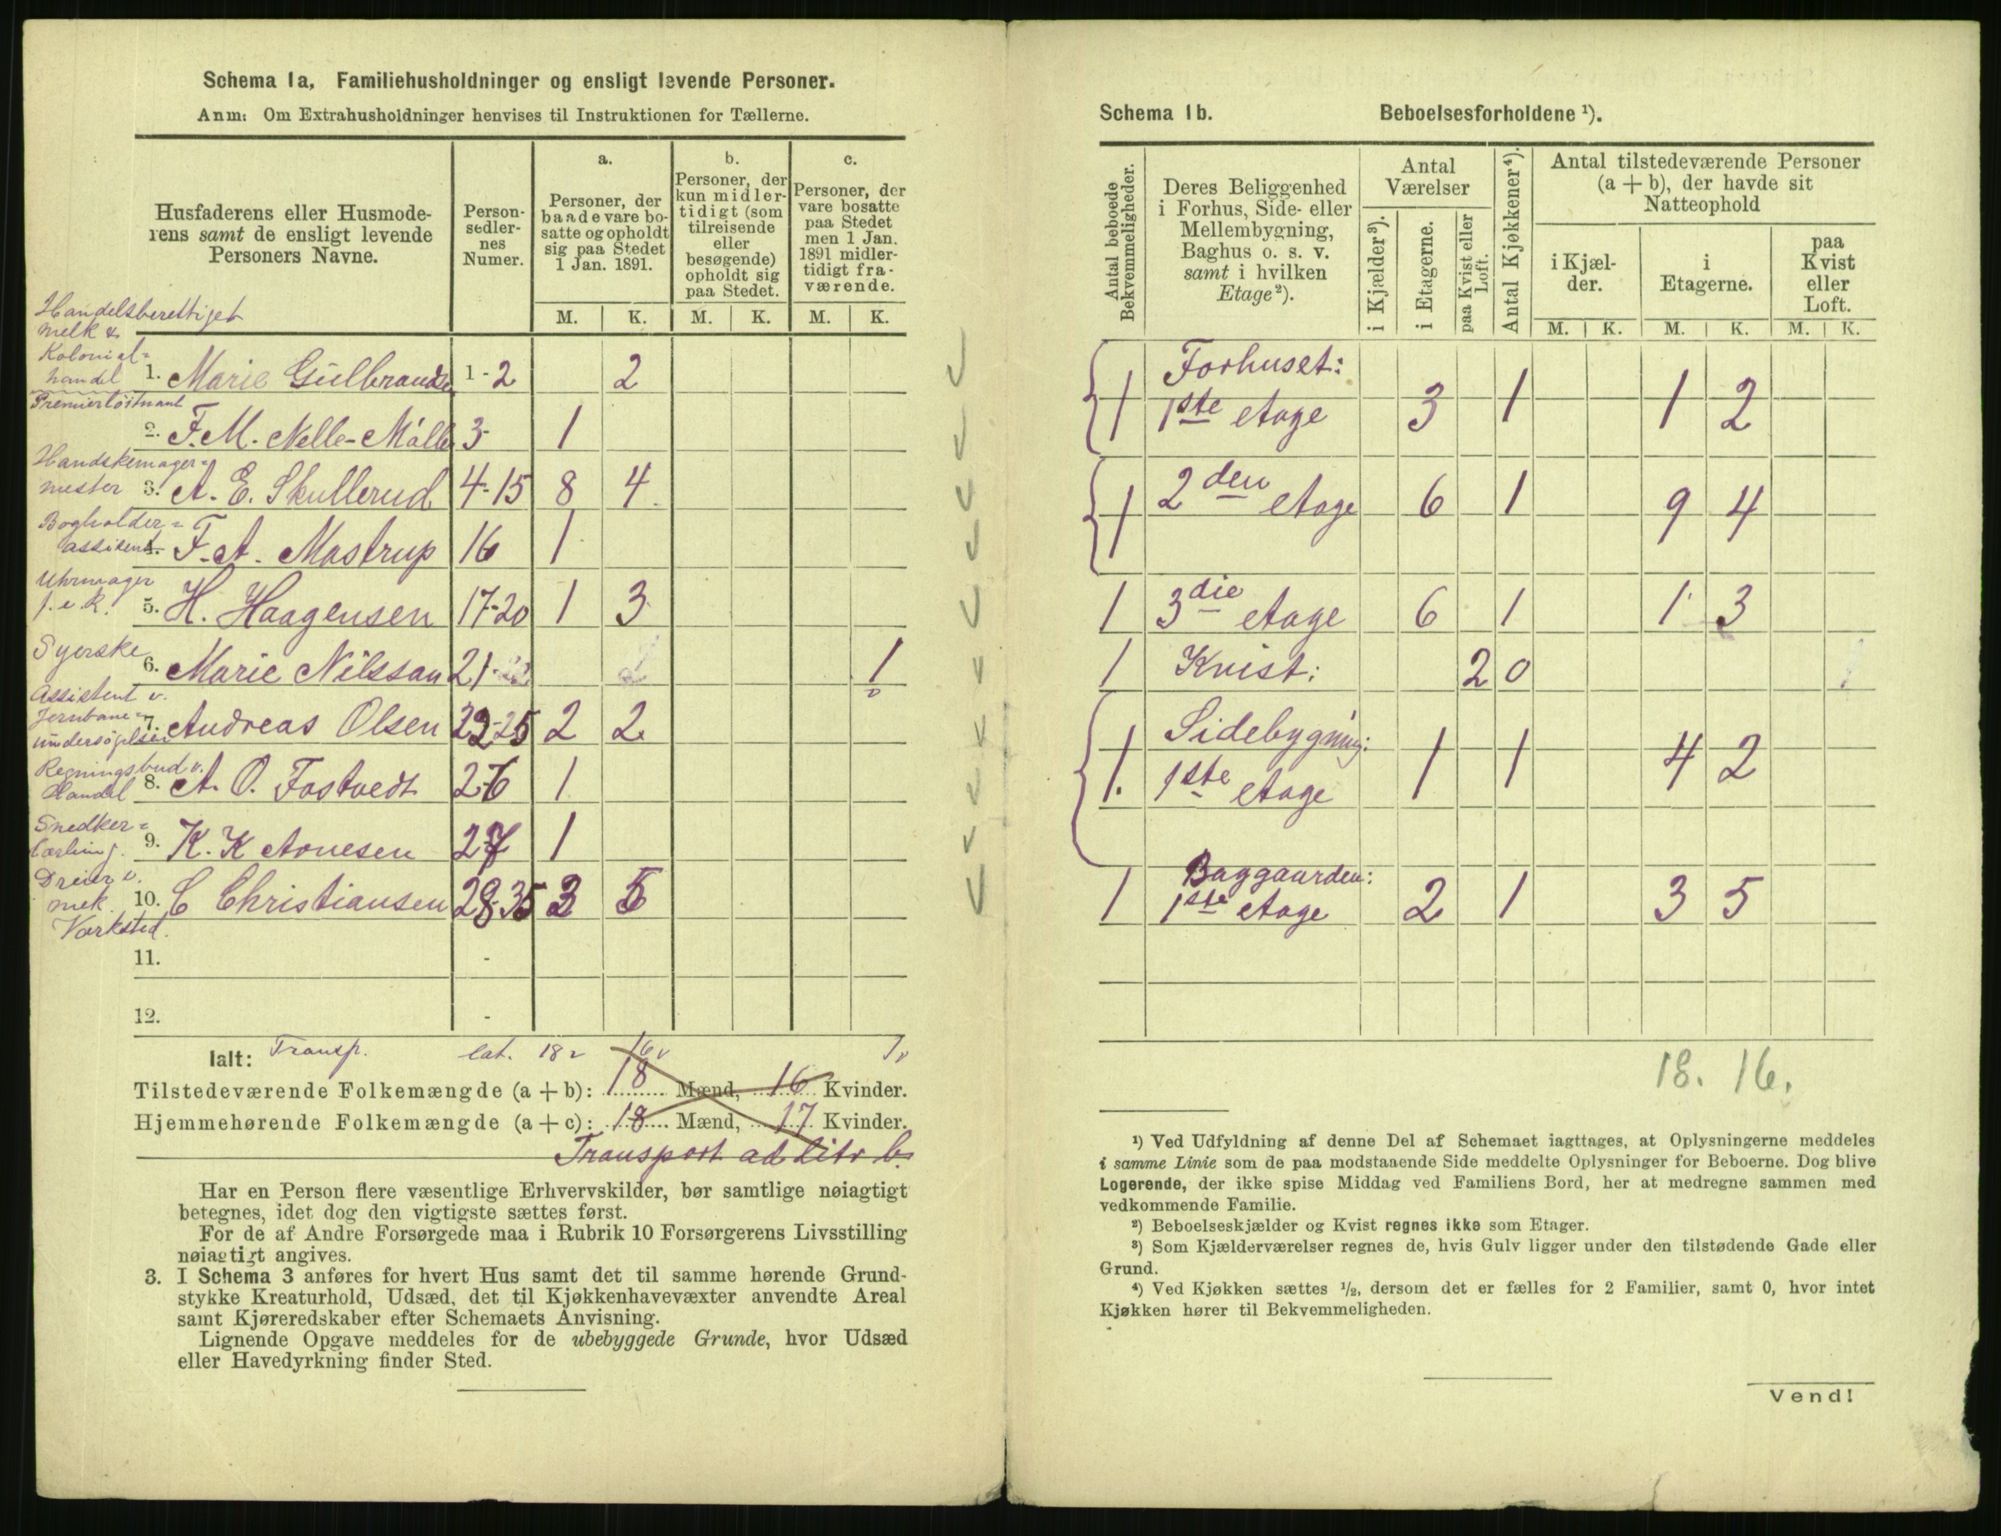 Schema 1a, Familiehusholdninger og ensligt levende Personer.
Anm: Om Extrahusholdninger henvises til Instruktionen for Tællerne.
Husfaderens eller Husmoderens samt de ensligt levende Personers Navne.
Personsedlernes Numer.
a. Personer, der baade vare bosatte og opholdt sig paa Stedet 1 Jan. 1891.
b. Personer, der kun midlertidigt (som tilreisende eller besøgende) opholdt sig paa Stedet.
c. Personer, der vare bosatte paa Stedet men 1 Jan. 1891 midlertidigt fraværende.
M. K. M. K. M. K.
Handelsberettiget
melk &
Kolonial=
handel 1. Marie Gulbrandsen 1-2 2
Premierløitnant
2. F. M. Nelle-Möller 3- 1
Handskemager=
mester 3. A. E. Skullerud 4-15 8 4
Bogholder=
assistent 4. F. A. Mostrup 16 1
Uhrmager
f. e. R. 5. H. Haagensen 17-20 1 3
Syerske
6. Marie Nilssan 21- 1
Assistent v.
Jernbane=
undersøgelsen 7. Andreas Olsen 22-25 2 2
Regningsbud v.
Handel 8. A. O. Fostvedt 26 1
Snedker=
Lærling. 9. K. K Aonesen 27 1
Dreier v.
mek. 10. C Christiansen 28-35 3 5
Værksted.
11. -
12. -
Ialt: Transp. lat. 18 16 1
Tilstedeværende Folkemængde (a + b): 18 Mænd, 16 Kvinder.
Hjemmehørende Folkemængde (a + c): 18 Mænd, 17 Kvinder.
Transport ad Litr b.
Har en Person flere væsentlige Erhvervskilder, bør samtlige nøiagtigt
betegnes, idet dog den vigtigste sættes først.
For de af Andre Forsørgede maa i Rubrik 10 Forsørgerens Livsstilling
nøiagtigt angives.
3. I Schema 3 anføres for hvert Hus samt det til samme hørende Grund-
stykke Kreaturhold, Udsæd, det til Kjøkkenhavevæxter anvendte Areal
samt Kjøreredskaber efter Schemaets Anvisning.
Lignende Opgave meddeles for de ubebyggede Grunde, hvor Udsæd
eller Havedyrkning finder Sted.
Schema 1b. Beboelsesforholdene ¹).
Antal beboede Bekvemmeligheder.
Deres Beliggenhed i Forhus, Side- eller Mellembygning, Baghus o. s. v. samt i hvilken Etage²).
Antal Værelser
i Kjælder³).
i Etagerne.
paa Kvist eller Loft.
Antal Kjøkkener⁴).
Antal tilstedeværende Personer (a + b), der havde sit Natteophold
i Kjælder.
i Etagerne.
paa Kvist eller Loft.
M. K. M. K. M. K.
Forhuset:
1 1ste etage 3 1 1 2
1 2den etage 6 1 9 4
1 3die etage 6 1 1 3
1 Kvist: 2 0
Sidebygning:
1 1ste etage 1 1 4 2
Baggaarden:
1 1ste etage 2 1 3 5
18. 16.
¹) Ved Udfyldning af denne Del af Schemaet iagttages, at Oplysningerne meddeles
i samme Linie som de paa modstaaende Side meddelte Oplysninger for Beboerne. Dog blive
Logerende, der ikke spise Middag ved Familiens Bord, her at medregne sammen med
vedkommende Familie.
²) Beboelseskjælder og Kvist regnes ikke som Etager.
³) Som Kjælderværelser regnes de, hvis Gulv ligger under den tilstødende Gade eller
Grund.
⁴) Ved Kjøkken sættes ½, dersom det er fælles for 2 Familier, samt 0, hvor intet
Kjøkken hører til Bekvemmeligheden.
Vend!